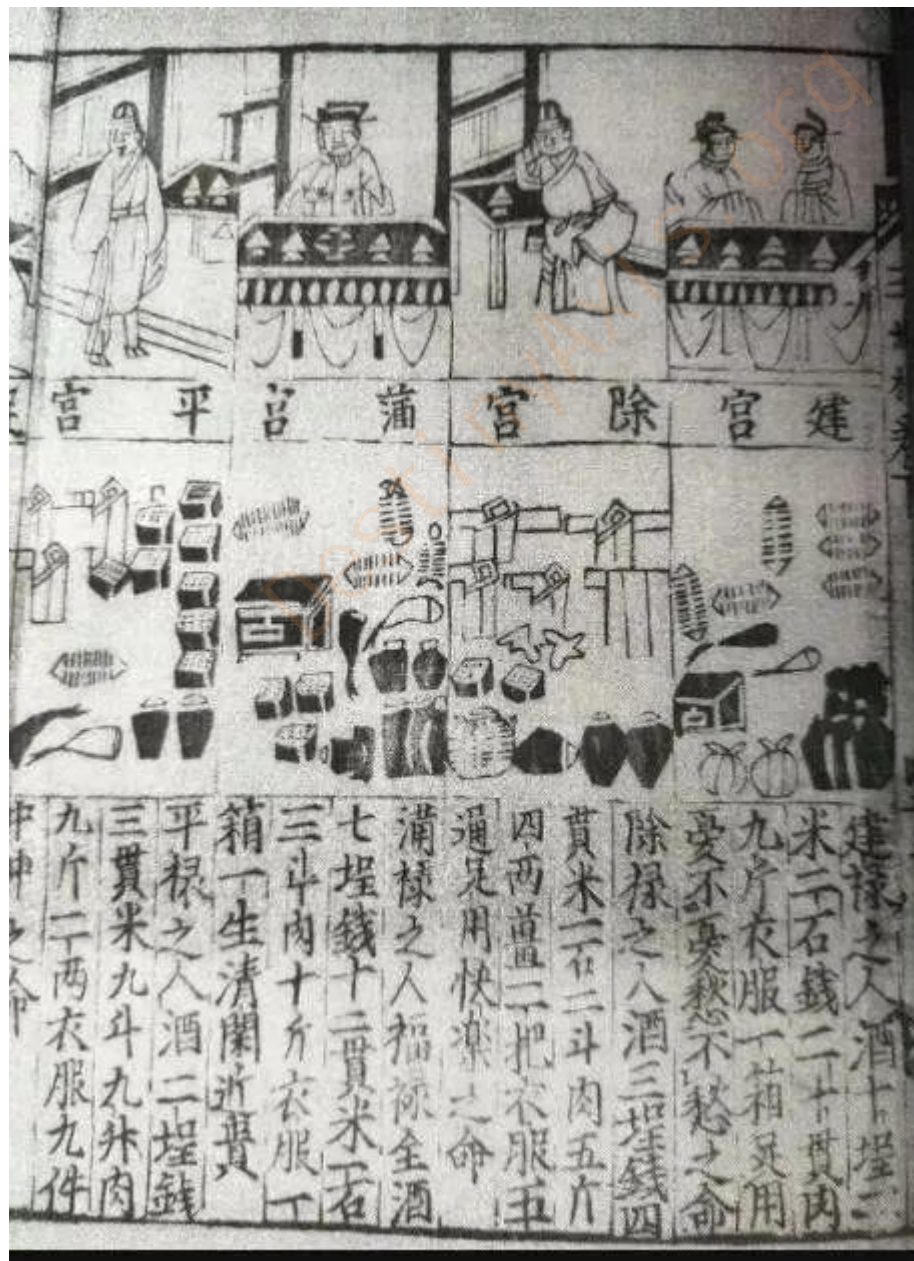 建宮
除宮
蒲宮
平宮
建祿之人酒十埕二
米二石錢二十貫肉
九斤衣服一箱足用
憂不憂愁不愁之命
除祿之人酒三埕錢四
貫米一石二斗肉五斤
四两薑二把衣服五
通足用快樂之命
滿祿之人福祿全酒
七埕錢十二貫米一石
三斗肉十斤衣服一
箱一生清閑近貴
平祿之人酒二埕錢
三貫米九斗九升肉
九斤二两衣服九件
之命
DestinyAxis.org